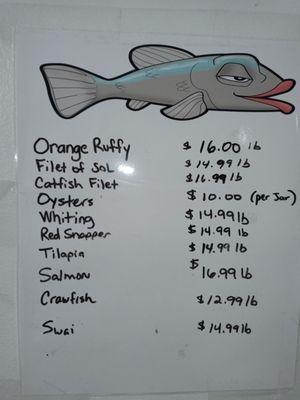 Orange Ruffy $16.00 lb
Filet of Sol $14.99 lb
Catfish Filet $16.99 lb
Oysters $10.00 (per Jar)
Whiting $14.99 lb
Red Snapper $14.99 lb
Tilapia $14.99 lb
Salmon $16.99 lb
Crawfish $12.99 lb
Swai $14.99 lb